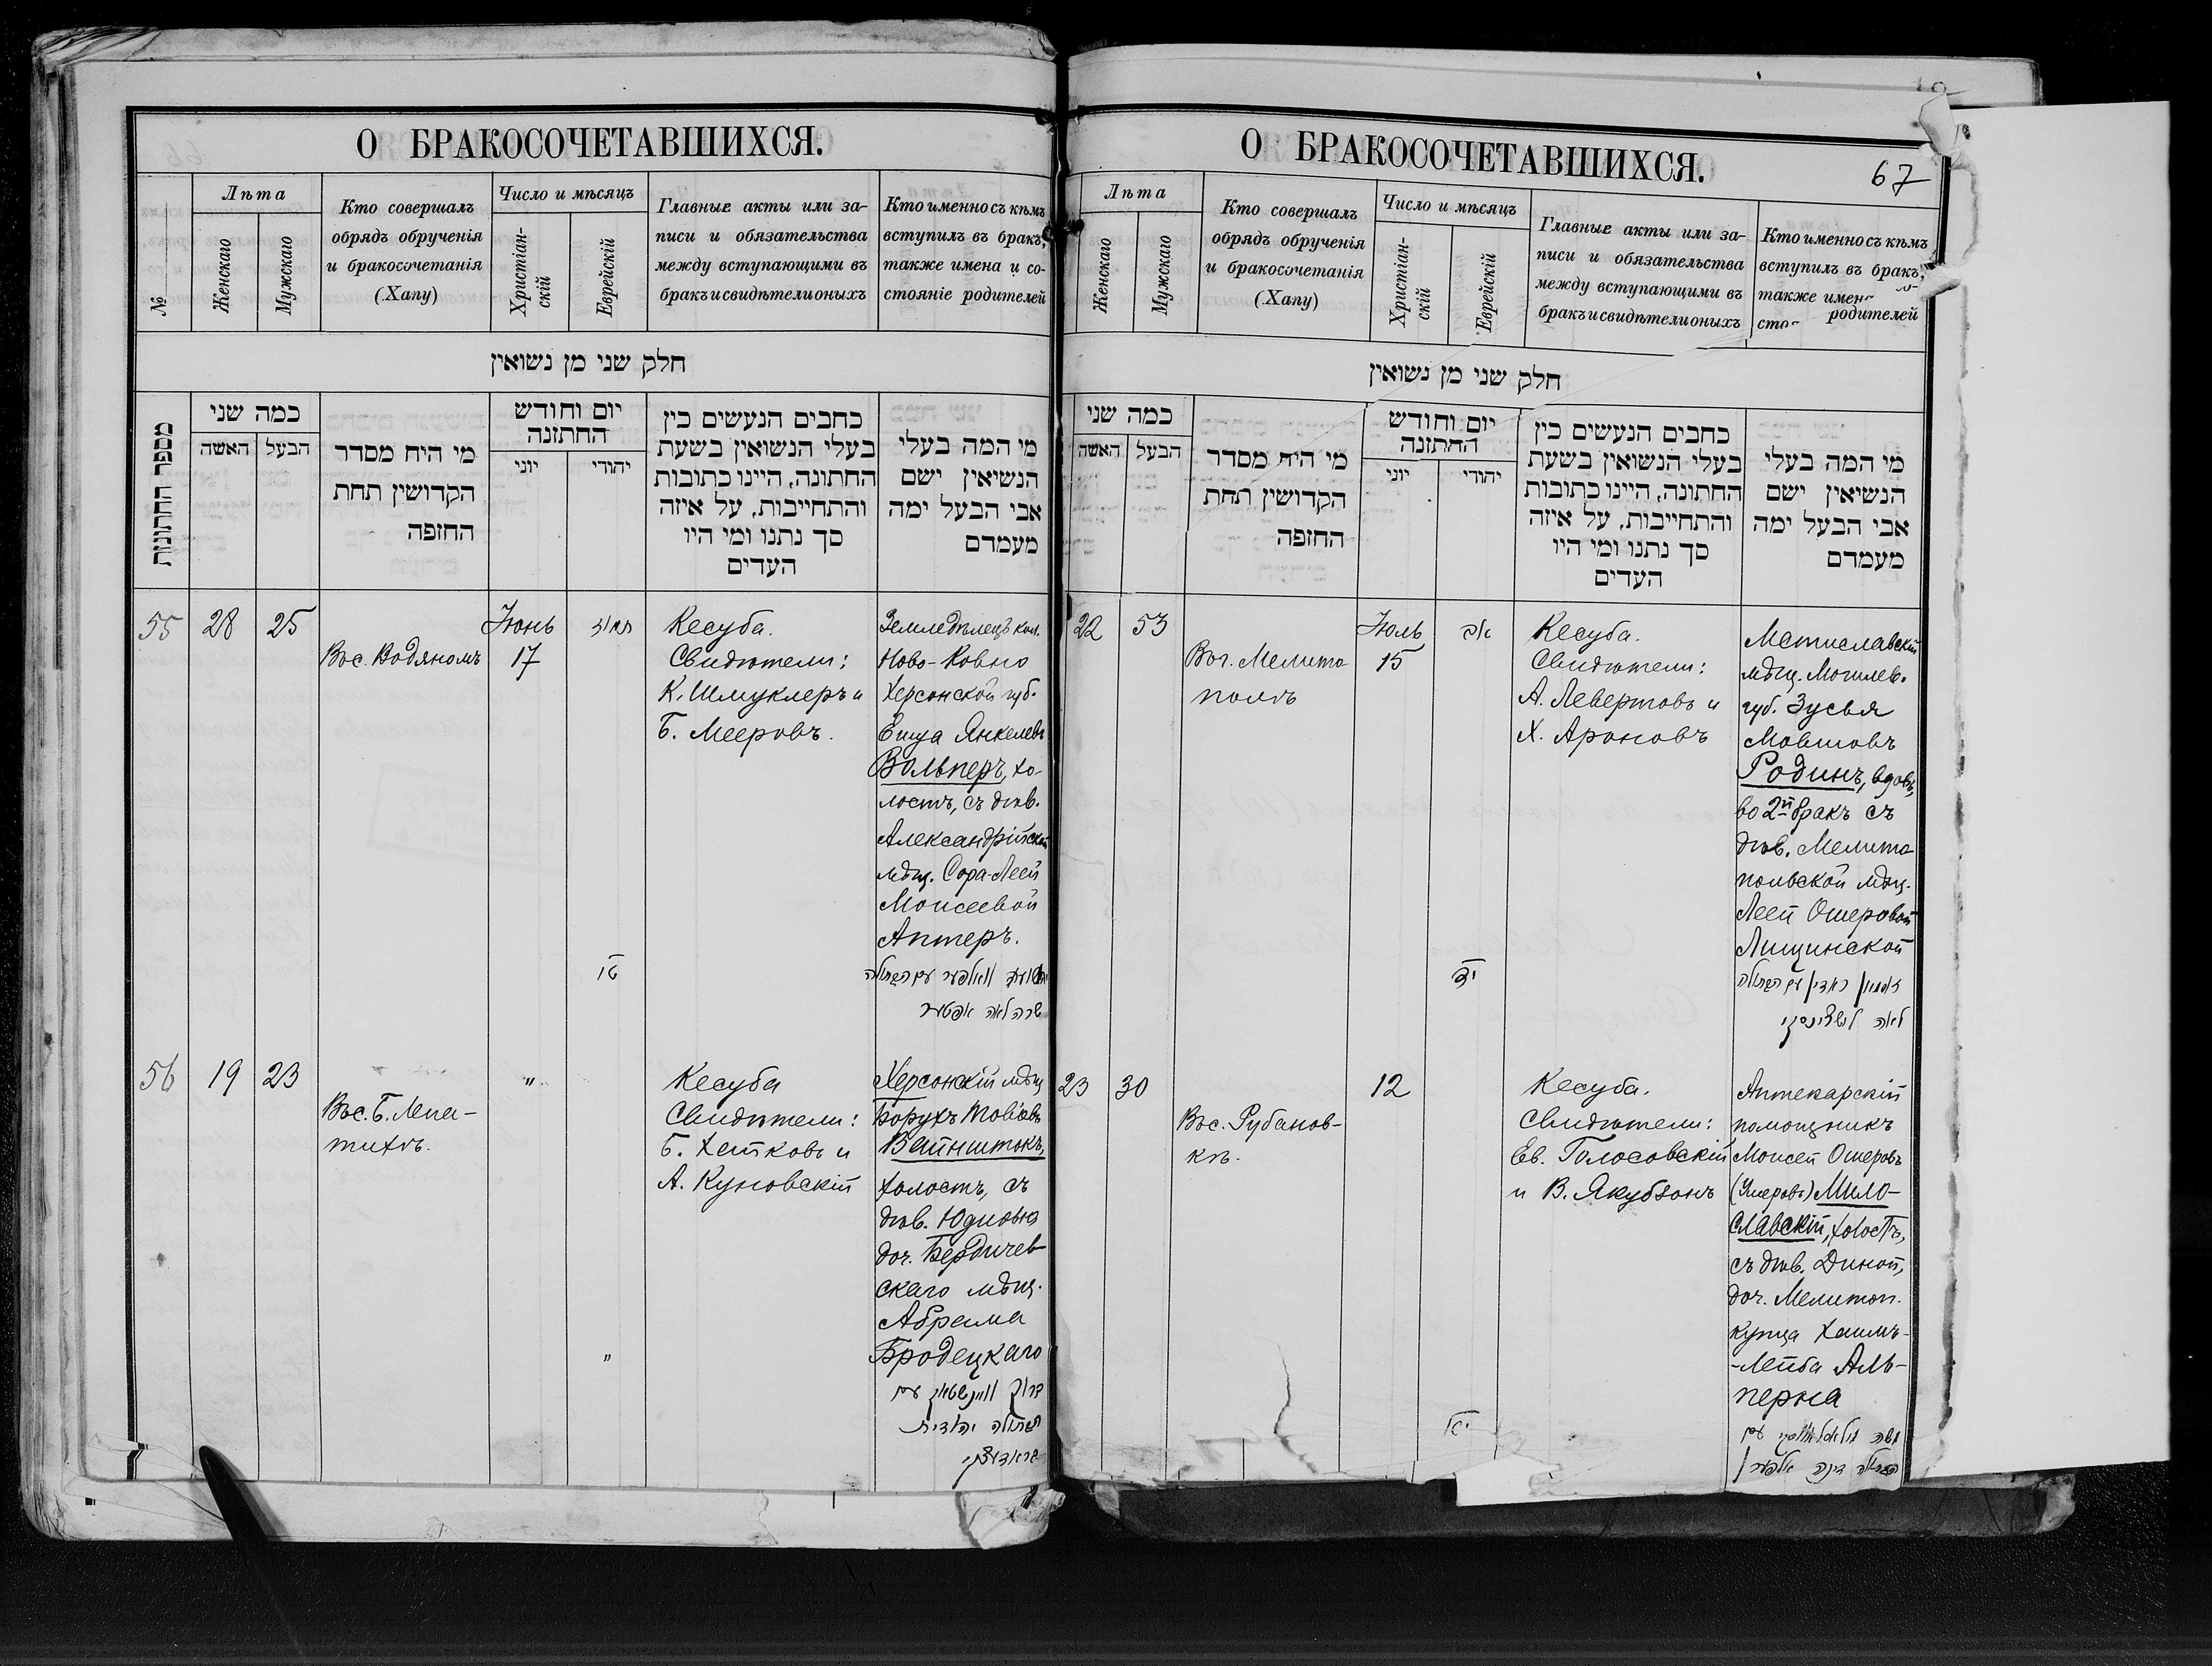 О БРАКОСОЧЕТАВШИХСЯ.
№
Лѣта
Женскаго
Мужскаго
Кто совершалъ
обрядъ обрученія
и бракосочетанія
(Хапу)
Число и мѣсяцъ
Христіан-
скій
Еврейскій
Главные акты или за-
писи и обязательства
между вступающими въ
бракъ и свидѣтели оныхъ
Кто именно съ кѣмъ
вступилъ въ бракъ,
также имена и со-
стояніе родителей
חלק שני מן נשואין
מספר החתונות
כמה שני
האשה
הבעל
מי היה מסדר
הקדושין תחת
החופה
יום וחודש
החתונה
יוני
יהודי
כתבים הנעשים בין
בעלי הנשואין בשעת
החתונה, היינו כתובות
והתחייבות, על איזה
סך נתנו ומי היו
העדים
מי המה בעלי
הנשיאין ישם
אבי הבעל ימה
מעמדם
55
28
25
Въ с. Водяномъ
Іюнь
17
תמוז
טו
Кесуба.
Свидѣтели:
К. Шмуклеръ и
Б. Мееровъ.
Земледѣлецъ кол.
Ново-Ковно
Херсонской губ.
Янкелевъ
Вольперъ, хо-
лостъ, съ дѣв.
Александрійской
мѣщ. Сора-Леей
Моисеевой
Аптеръ.
וואלפער עם הבתולה
שרה לאה אפטער
56
19
23
Въ с. Б. Лепа-
тихѣ.
"
"
Кесуба
Свидѣтели:
Б. Хейковъ и
А. Куновскій
Херсонскій мѣщ.
Борухъ Товіовъ
Вейнштокъ,
холостъ, съ
дѣв. Юдиѳью,
доч. Бердичев-
скаго мѣщ.
Абрама
Бродецкаго
ברוך ווינשטאק עם
הבתולה יהודית
בראדעצקי
О БРАКОСОЧЕТАВШИХСЯ.
67
Лѣта
Женскаго
Мужскаго
Кто совершалъ
обрядъ обрученія
и бракосочетанія
(Хапу)
Число и мѣсяцъ
Христіан-
скій
Еврейскій
Главные акты или за-
писи и обязательства
между вступающими въ
бракъ и свидѣтели оныхъ
Кто именно съ кѣмъ
вступилъ въ бракъ,
также имен
сто родителей
חלק שני מן נשואין
כמה שני
האשה
הבעל
מי היה מסדר
הקדושין תחת
החופה
יום וחודש
החתונה
יוני
יהודי
כתבים הנעשים בין
בעלי הנשואין בשעת
החתונה, היינו כתובות
והתחייבות, על איזה
סך נתנו ומי היו
העדים
מי המה בעלי
הנשיאין ישם
אבי הבעל ימה
מעמדם
22
53
Въ г. Мелито
полѣ
Іюль
15
אב
יד
Кесуба.
Свидѣтели:
А. Левертовъ и
Х. Ароновъ
Мстиславскій
мѣщ. Могилев.
губ. Зусья
Мовшовъ
Родинъ, вдовъ,
во 2й бракъ съ
дѣв. Мелито
польской мѣщ.
Леей Ошеровой
Лищинской
ראדין עם הבתולה
לאה
23
30
Въ с. Рубанов-
кѣ.
12
יא
Кесуба.
Свидѣтели:
Ев. Голосовскій
и В. Якубзонъ
Аптекарскій
помощникъ
Моисей Ошеровъ
(Ушеровъ) Мило-
славскій, холостъ,
съ дѣв. Диной,
доч. Мелитоп.
купца Хаимъ-
-Лейба Аль-
перна
משה עם
הבתולה דינה אלפערן